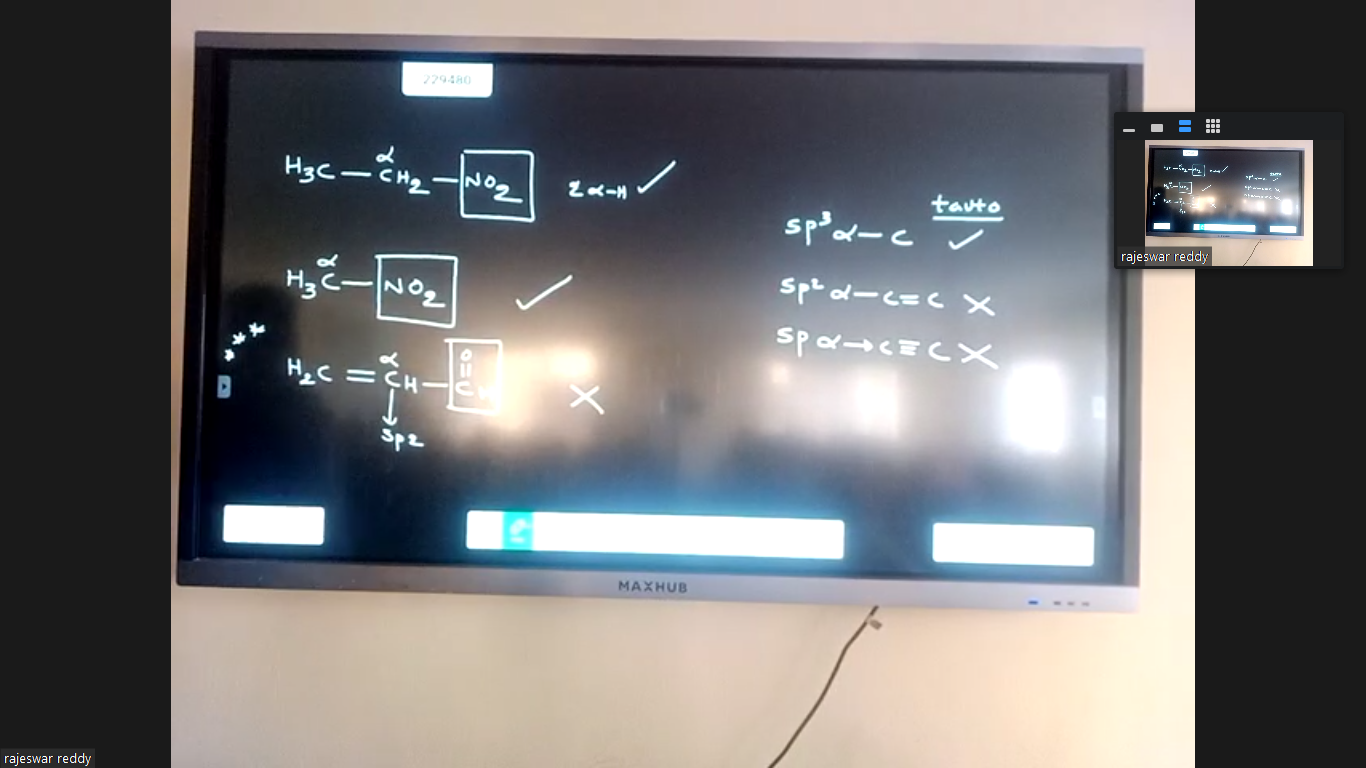 229480
H₃C — CH₂ — NO₂ 2 α-H ✓
α
H₃C — NO₂ ✓
α
H₂C = CH — CH ✗
α
O
||
↓
sp2
tauto
sp³ α — C ✓
sp² α — C = C ✗
sp α → C ≡ C ✗
MAXHUB
rajeswar reddy
rajeswar reddy